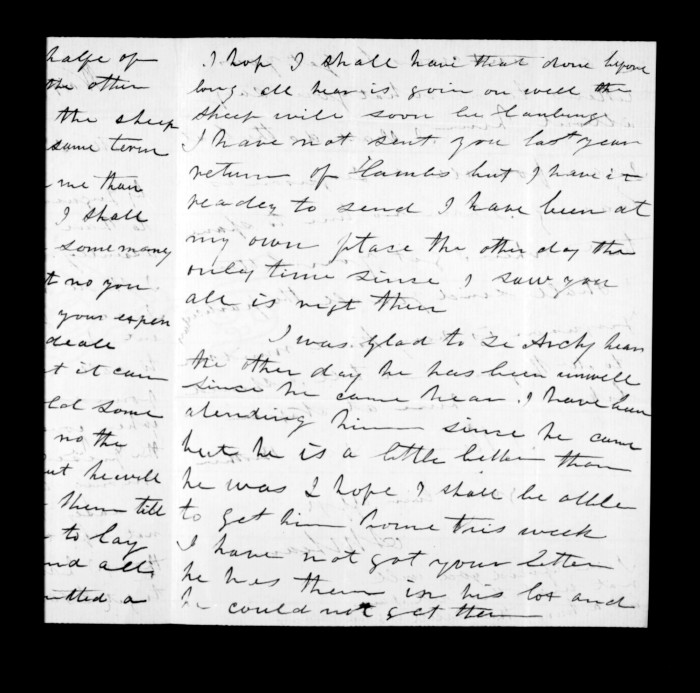 halfe of
the other
the sheep
same term
me than
I shall
some many
t no you
your expen
deale
t it can
old some
no the
ut he will
them till
to lay
nd all
mtted a
I hop I shall have that done before
long all hear is goin on well the
sheep will soon be lambing
I have not sent you last year
return of Lambs but I have it
readey to send I have been at
my own place the other day the
only time since I saw you
all is rigt ther
I was glad to se Archy hear
the other day he has been unwell
since he came hear. I have been
atending him since he came
but he is a little better than
he was I hope I shall be able
to get him home this week
I have not got your Letter
he has them in his box and
he could not get them